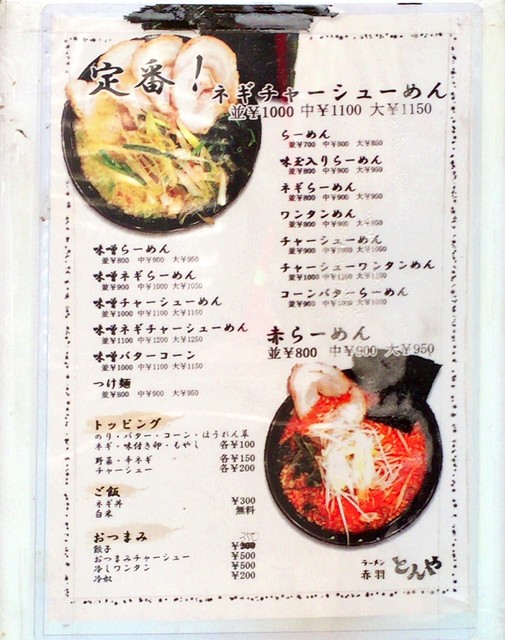 定番！
ネギチャーシューめん
並¥1000 中¥1100 大¥1150
らーめん
並¥700 中¥800 大¥850
味玉入りらーめん
並¥800 中¥900 大¥950
ネギらーめん
並¥800 中¥900 大¥950
ワンタンめん
並¥800 中¥900 大¥950
チャーシューめん
並¥900 中¥1000 大¥1050
チャーシューワンタンめん
並¥1000 中¥1100 大¥1200
コーンバターらーめん
並¥900 中¥1000 大¥1050
味噌らーめん
並¥800 中¥900 大¥950
味噌ネギらーめん
並¥900 中¥1000 大¥1050
味噌チャーシューめん
並¥1000 中¥1100 大¥1150
味噌ネギチャーシューめん
並¥1100 中¥1200 大¥1250
味噌バターコーン
並¥1000 中¥1100 大¥1150
つけ麺
並¥800 中¥900 大¥950
赤らーめん
並¥800 中¥900 大¥950
トッピング
のり・バター・コーン・ほうれん草
ネギ・味付き卵・もやし 各¥100
野菜・辛ネギ 各¥150
チャーシュー 各¥200
ご飯
ネギ丼 ¥300
白米 無料
おつまみ
餃子 350
おつまみチャーシュー ¥500
冷しワンタン ¥500
冷奴 ¥200
ラーメン
赤羽 とんや